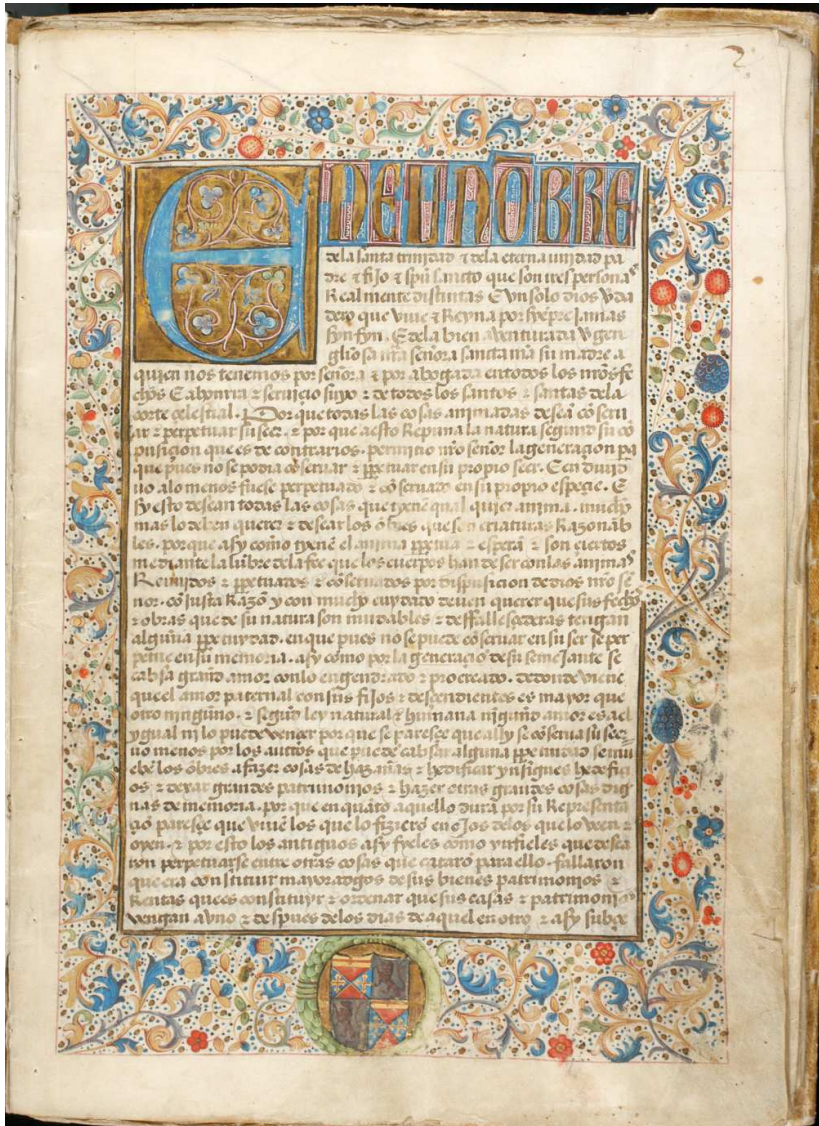 2
EN EL NOBRE
dela santa trinidad & dela eterna unidad pa
dre & fijo & spu sancto que son tres personas
Realmente distintas E un solo dios vda
dero que vive & Reyna por sienpre Jamas
syn fyn. E dela bien aventurada virgen
gliosa nra señora sancta ma su madre a
quien nos tenemos por señora & por abogada en todos los nros fe
chos E a honrra & servicio suyo & de todos los santos & santas dela
corte celestial. Por que todas las cosas animadas desea coseru
ar & perpetuar su seer. & por que a esto Repuna la natura segund su co
pusiçion que es de contrarios. permitio nro señor la generaçion pa
que pues no se podia coseruar & ppetuar en su propio seer. E en diuid
uo alo menos fuese perpetuado & coseruado en su propio espeçie. E
sy esto desean todas las cosas que tyene qual quier anima. mucho
mas lo deben querer & desear los obres que son criaturas Razonab
les. porque asy como tyene el anima ppetua & espera & son ciertos
mediante la lubre dela fee que los cuerpos han de ser con las animas
Reunidos & ppetuados & coseruados por dispusicion de dios nro se
nor. co justa Razo y con mucho cuydado deuen querer que sus fechos
& obras que de su natura son mudables & desfallesçederas tengan
alguna ppetuydad. en que pues no se puede coseruar en su ser se per
petue en su memoria. asy como por la generaçio de su semejante se
cabsa grand amor con lo engendrado & procreado. de donde viene
que el amor paternal con sus fijos & desçendientes es mayor que
otro ninguno. & segund ley natural & humana ningund amor es a el
ygual ni lo puede vençer por que se paresçe que alli se coserua su seer
no menos por los auttos que puede cabsar alguna ppetuidad se mu
ebe los obres a fazer cosas de hazañas & hedificar ynsignes hedefiçi
os & dexar grandes patrimonios & hazer otras grandes cosas dig
nas de memoria. por que en quato aquello dura por su Representa
çio paresçe que vive los que lo fiziero en ojos delos que lo veen &
oyen. & por esto los antiguos asy fyeles como ynfieles que desea
ron perpetuarse entre otras cosas que cataro para ello. fallaron
que era constituir mayoradgos de sus bienes patrimonios &
Rentas que es constituyr & ordenar que sus casas & patrimonios
vengan a vno & despues delos dias de aquel en otro & asy subçe